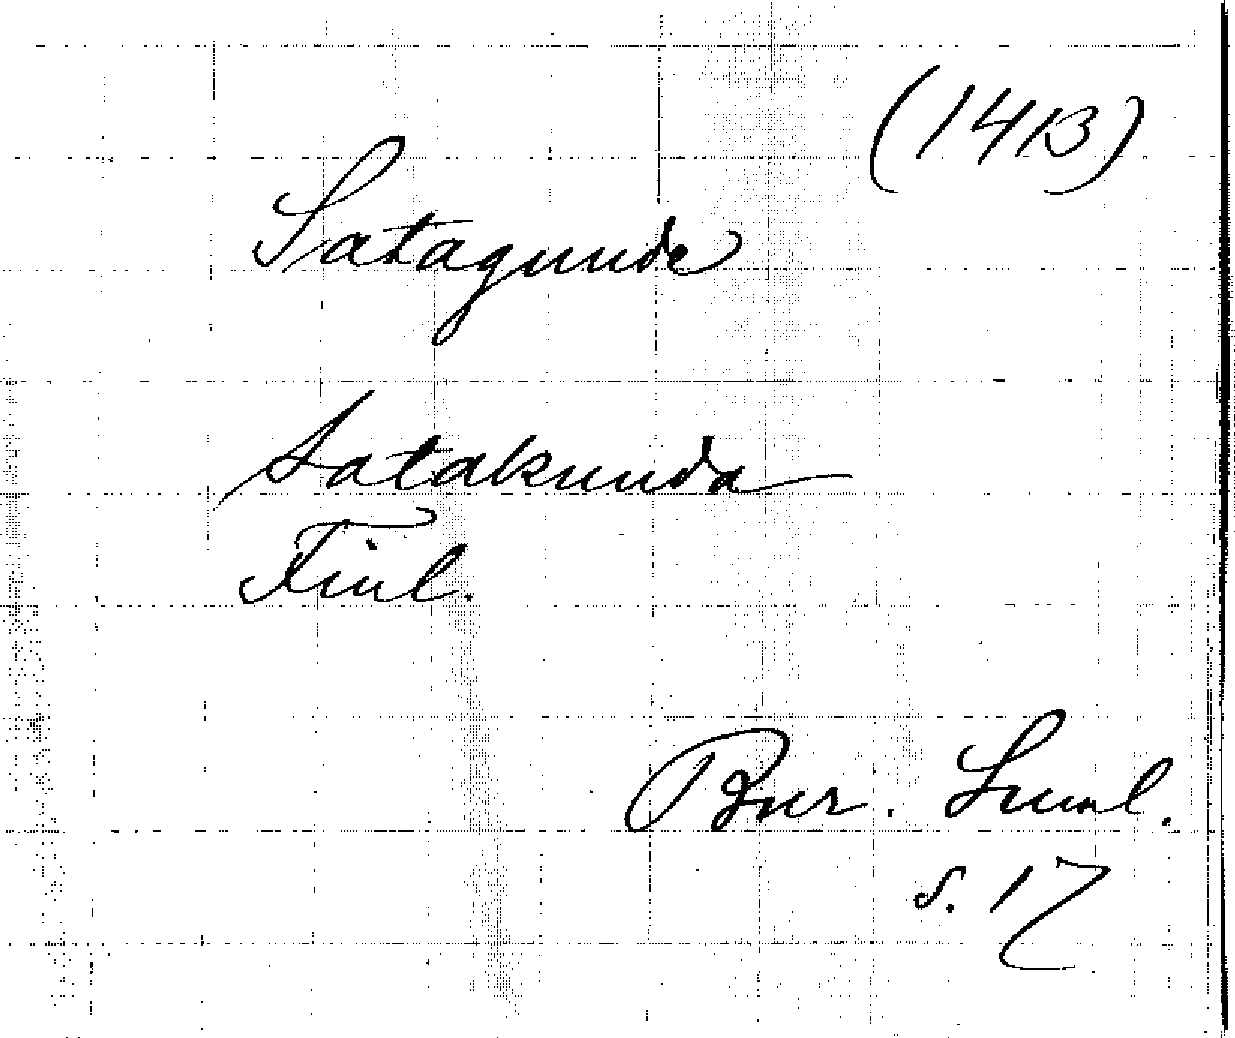 (1413)
Satagunde
Satakunda
Finl.
Bur. Suml.
s. 17